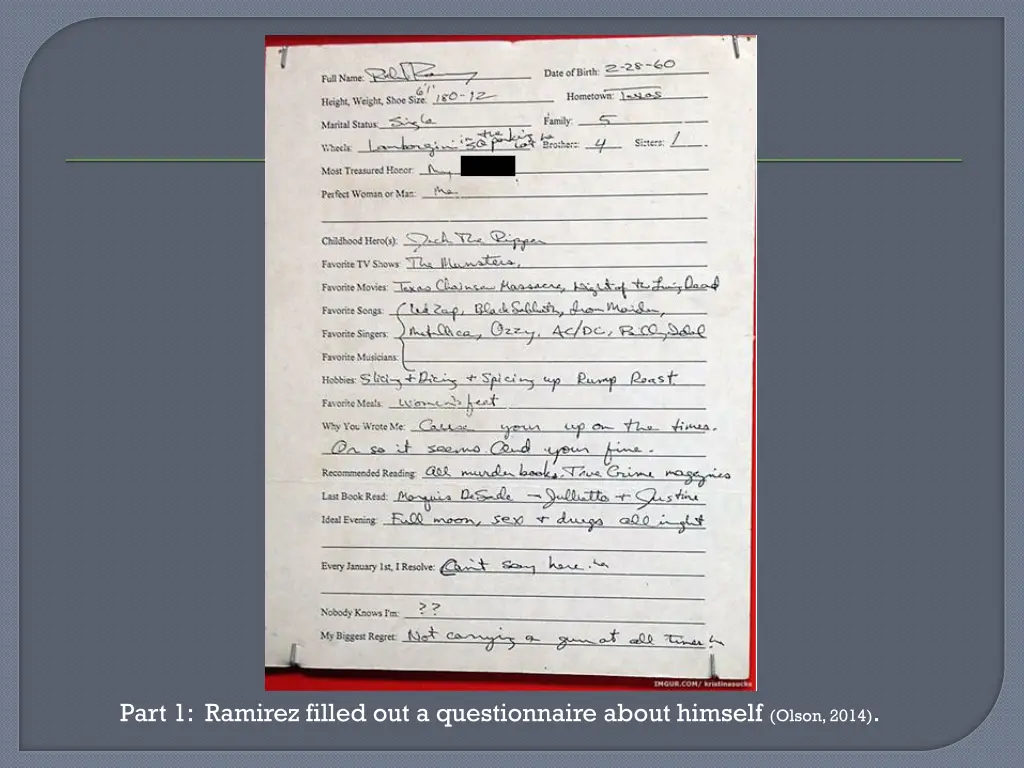 Full Name: Date of Birth: 2-28-60
Height, Weight, Shoe Size: 6'1" 180-12 Hometown: Texas
Marital Status: Single Family: 5
Wheels: Lamborgini in the SQ parking lot ha Brothers: 4 Sisters: 1
Most Treasured Honor: My
Perfect Woman or Man: Me
Childhood Hero(s): Jack The Ripper
Favorite TV Shows: The Munsters,
Favorite Movies: Texas Chainsaw Massacre, Night of the Living Dead
Favorite Songs: Led Zap, Black Sabbath, Iron Maiden,
Favorite Singers: Metallica, Ozzy, AC/DC, Billy Idol
Favorite Musicians:
Hobbies: Slicing + Dicing + Spicing up Rump Roast
Favorite Meals: Women's feet
Why You Wrote Me: Cause your up on the times.
Or so it seems. And your fine.
Recommended Reading: All murder books, True Crime magazines
Last Book Read: Marquis DeSade – Jullutta + Justine
Ideal Evening: Full moon, sex + drugs all night
Every January 1st, I Resolve: Can't say here. ha
Nobody Knows I'm: ??
My Biggest Regret: Not carrying a gun at all times ha
IMGUR.COM/ kristinasucks
Part 1: Ramirez filled out a questionnaire about himself (Olson, 2014).